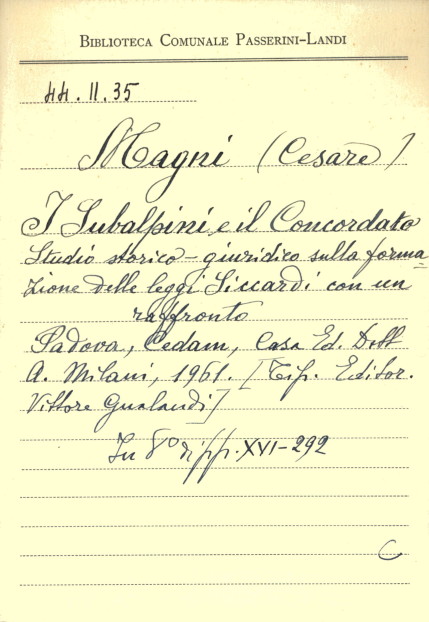 BIBLIOTECA COMUNALE PASSERINI-LANDI
44.II.35
Magni (Cesare)
I Subalpini e il Concordato
Studio storico-giuridico sulla forma=
zione delle leggi Siccardi con un
raffronto
Padova, Cedam, Casa Ed. Dott
A. Milani, 1961. [Tip. Editor.
Vittore Gualandi]
In 8° di pp. XVI-292
C